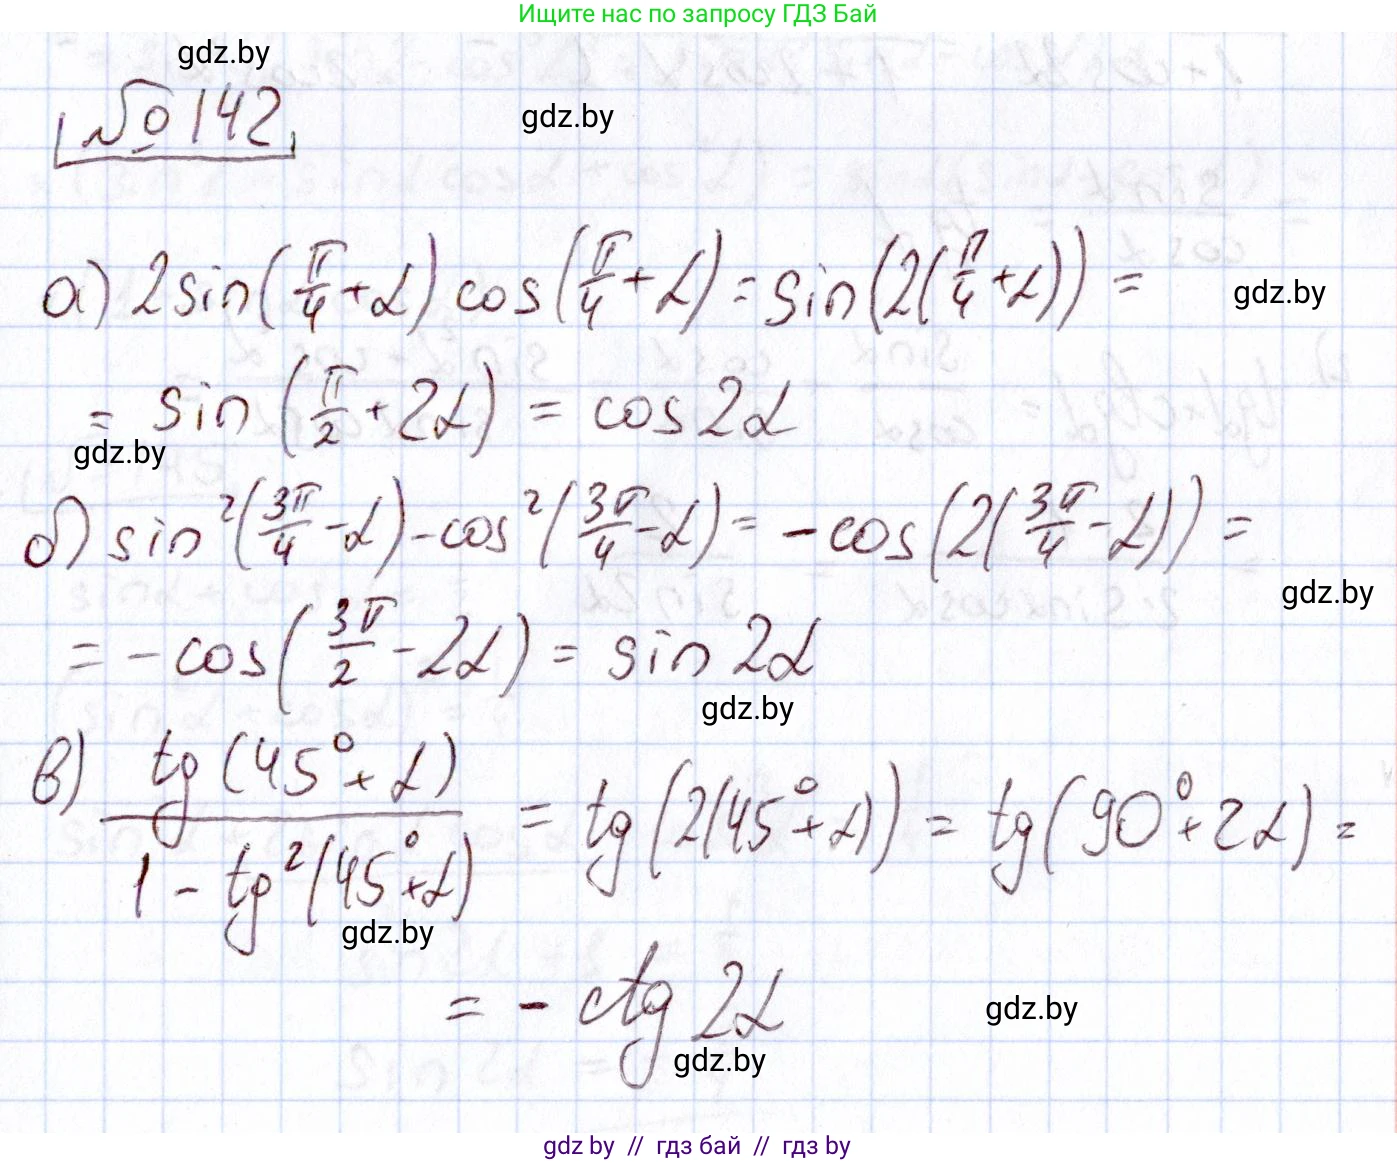 Ищите нас по запросу ГДЗ Бай
gdz.by
№ 142
gdz.by
а) 2sin(π/4 + α) cos(π/4 + α) = sin(2(π/4 + α)) =
gdz.by
= sin(π/2 + 2α) = cos 2α
gdz.by
б) sin²(3π/4 - α) - cos²(3π/4 - α) = -cos(2(3π/4 - α)) =
gdz.by
= -cos(3π/2 - 2α) = sin 2α
gdz.by
в) tg(45° + α) / 1 - tg²(45° + α) = tg(2(45° + α)) = tg(90° + 2α) =
gdz.by
= - ctg 2α
gdz.by
gdz.by
gdz by // гдз бай // гдз by